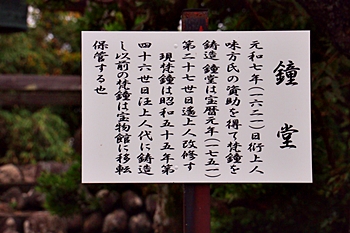 鐘堂
元和七年(一六二一)日衍上人
味方氏の資助を得て梵鐘を
鋳造 鐘堂は宝暦元年(一七五一)
第二十七世日暹上人改修す
現梵鐘は昭和五十五年第
四十六世日汪上人代に鋳造
し以前の梵鐘は宝物館に移転
保管する也